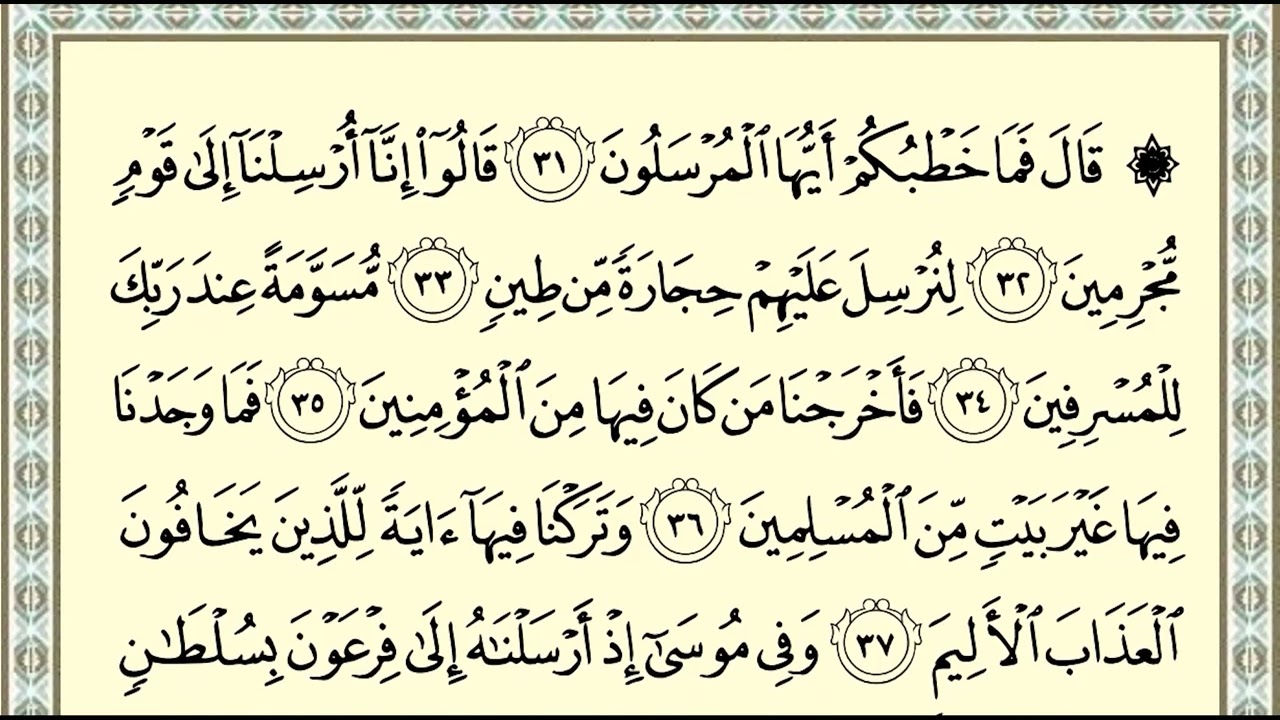 ۞ قَالَ فَمَا خَطْبُكُمْ أَيُّهَا ٱلْمُرْسَلُونَ ٣١ قَالُوٓا۟ إِنَّآ أُرْسِلْنَآ إِلَىٰ قَوْمٍ
مُّجْرِمِينَ ٣٢ لِنُرْسِلَ عَلَيْهِمْ حِجَارَةً مِّن طِينٍ ٣٣ مُّسَوَّمَةً عِندَ رَبِّكَ
لِلْمُسْرِفِينَ ٣٤ فَأَخْرَجْنَا مَن كَانَ فِيهَا مِنَ ٱلْمُؤْمِنِينَ ٣٥ فَمَا وَجَدْنَا
فِيهَا غَيْرَ بَيْتٍ مِّنَ ٱلْمُسْلِمِينَ ٣٦ وَتَرَكْنَا فِيهَآ ءَايَةً لِّلَّذِينَ يَخَافُونَ
ٱلْعَذَابَ ٱلْأَلِيمَ ٣٧ وَفِى مُوسَىٰٓ إِذْ أَرْسَلْنَٰهُ إِلَىٰ فِرْعَوْنَ بِسُلْطَٰنٍ